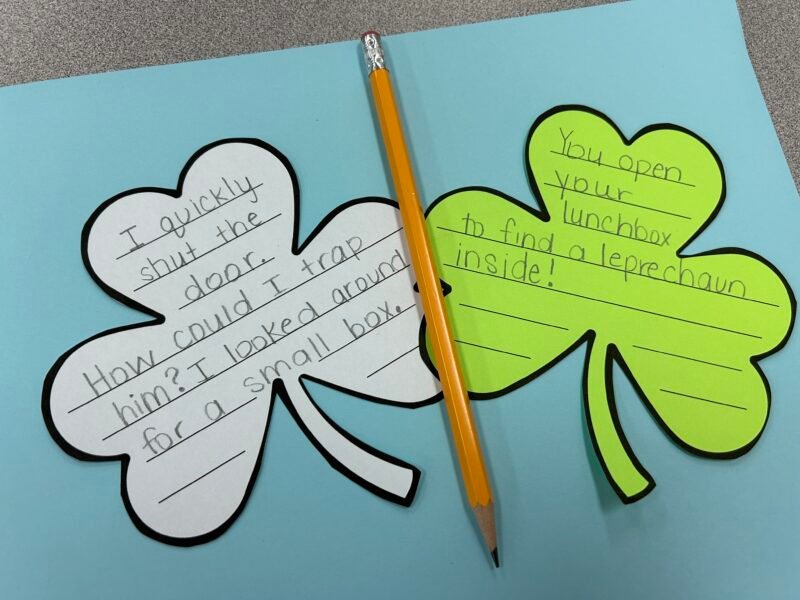 I quickly
shut the
door.
How could I trap
him? I looked around
for a small box.
You open
your
lunchbox
to find a leprechaun
inside!